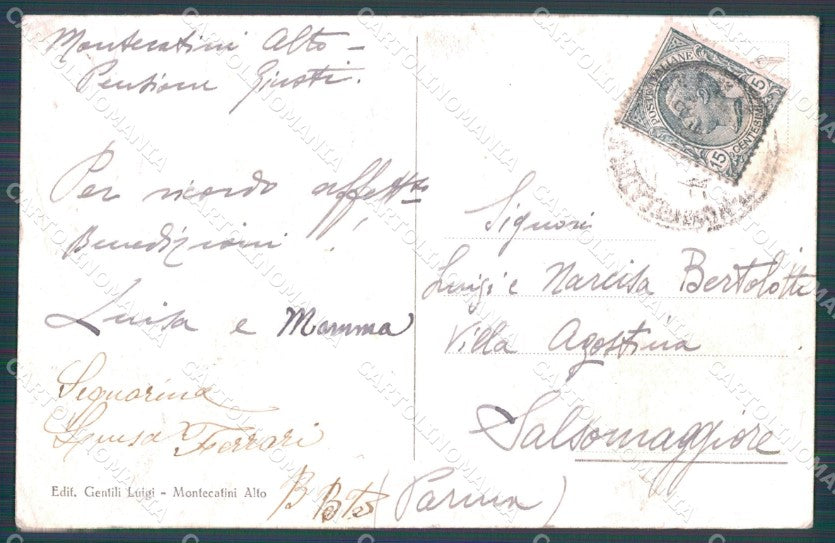 Montecatini Alto –
Pensione Giusti.
Per ricordo affett
Benedizioni
Luisa e Mamma
Signorina
Luisa Ferrari
Edit. Gentili Luigi - Montecatini Alto
POSTE ITALIANE
15 CENTESIMI 15
Signori
Luigi e Narcisa Bertolotti
Villa Agostina
Salsomaggiore
(Parma)
CARTOLINOMANIA